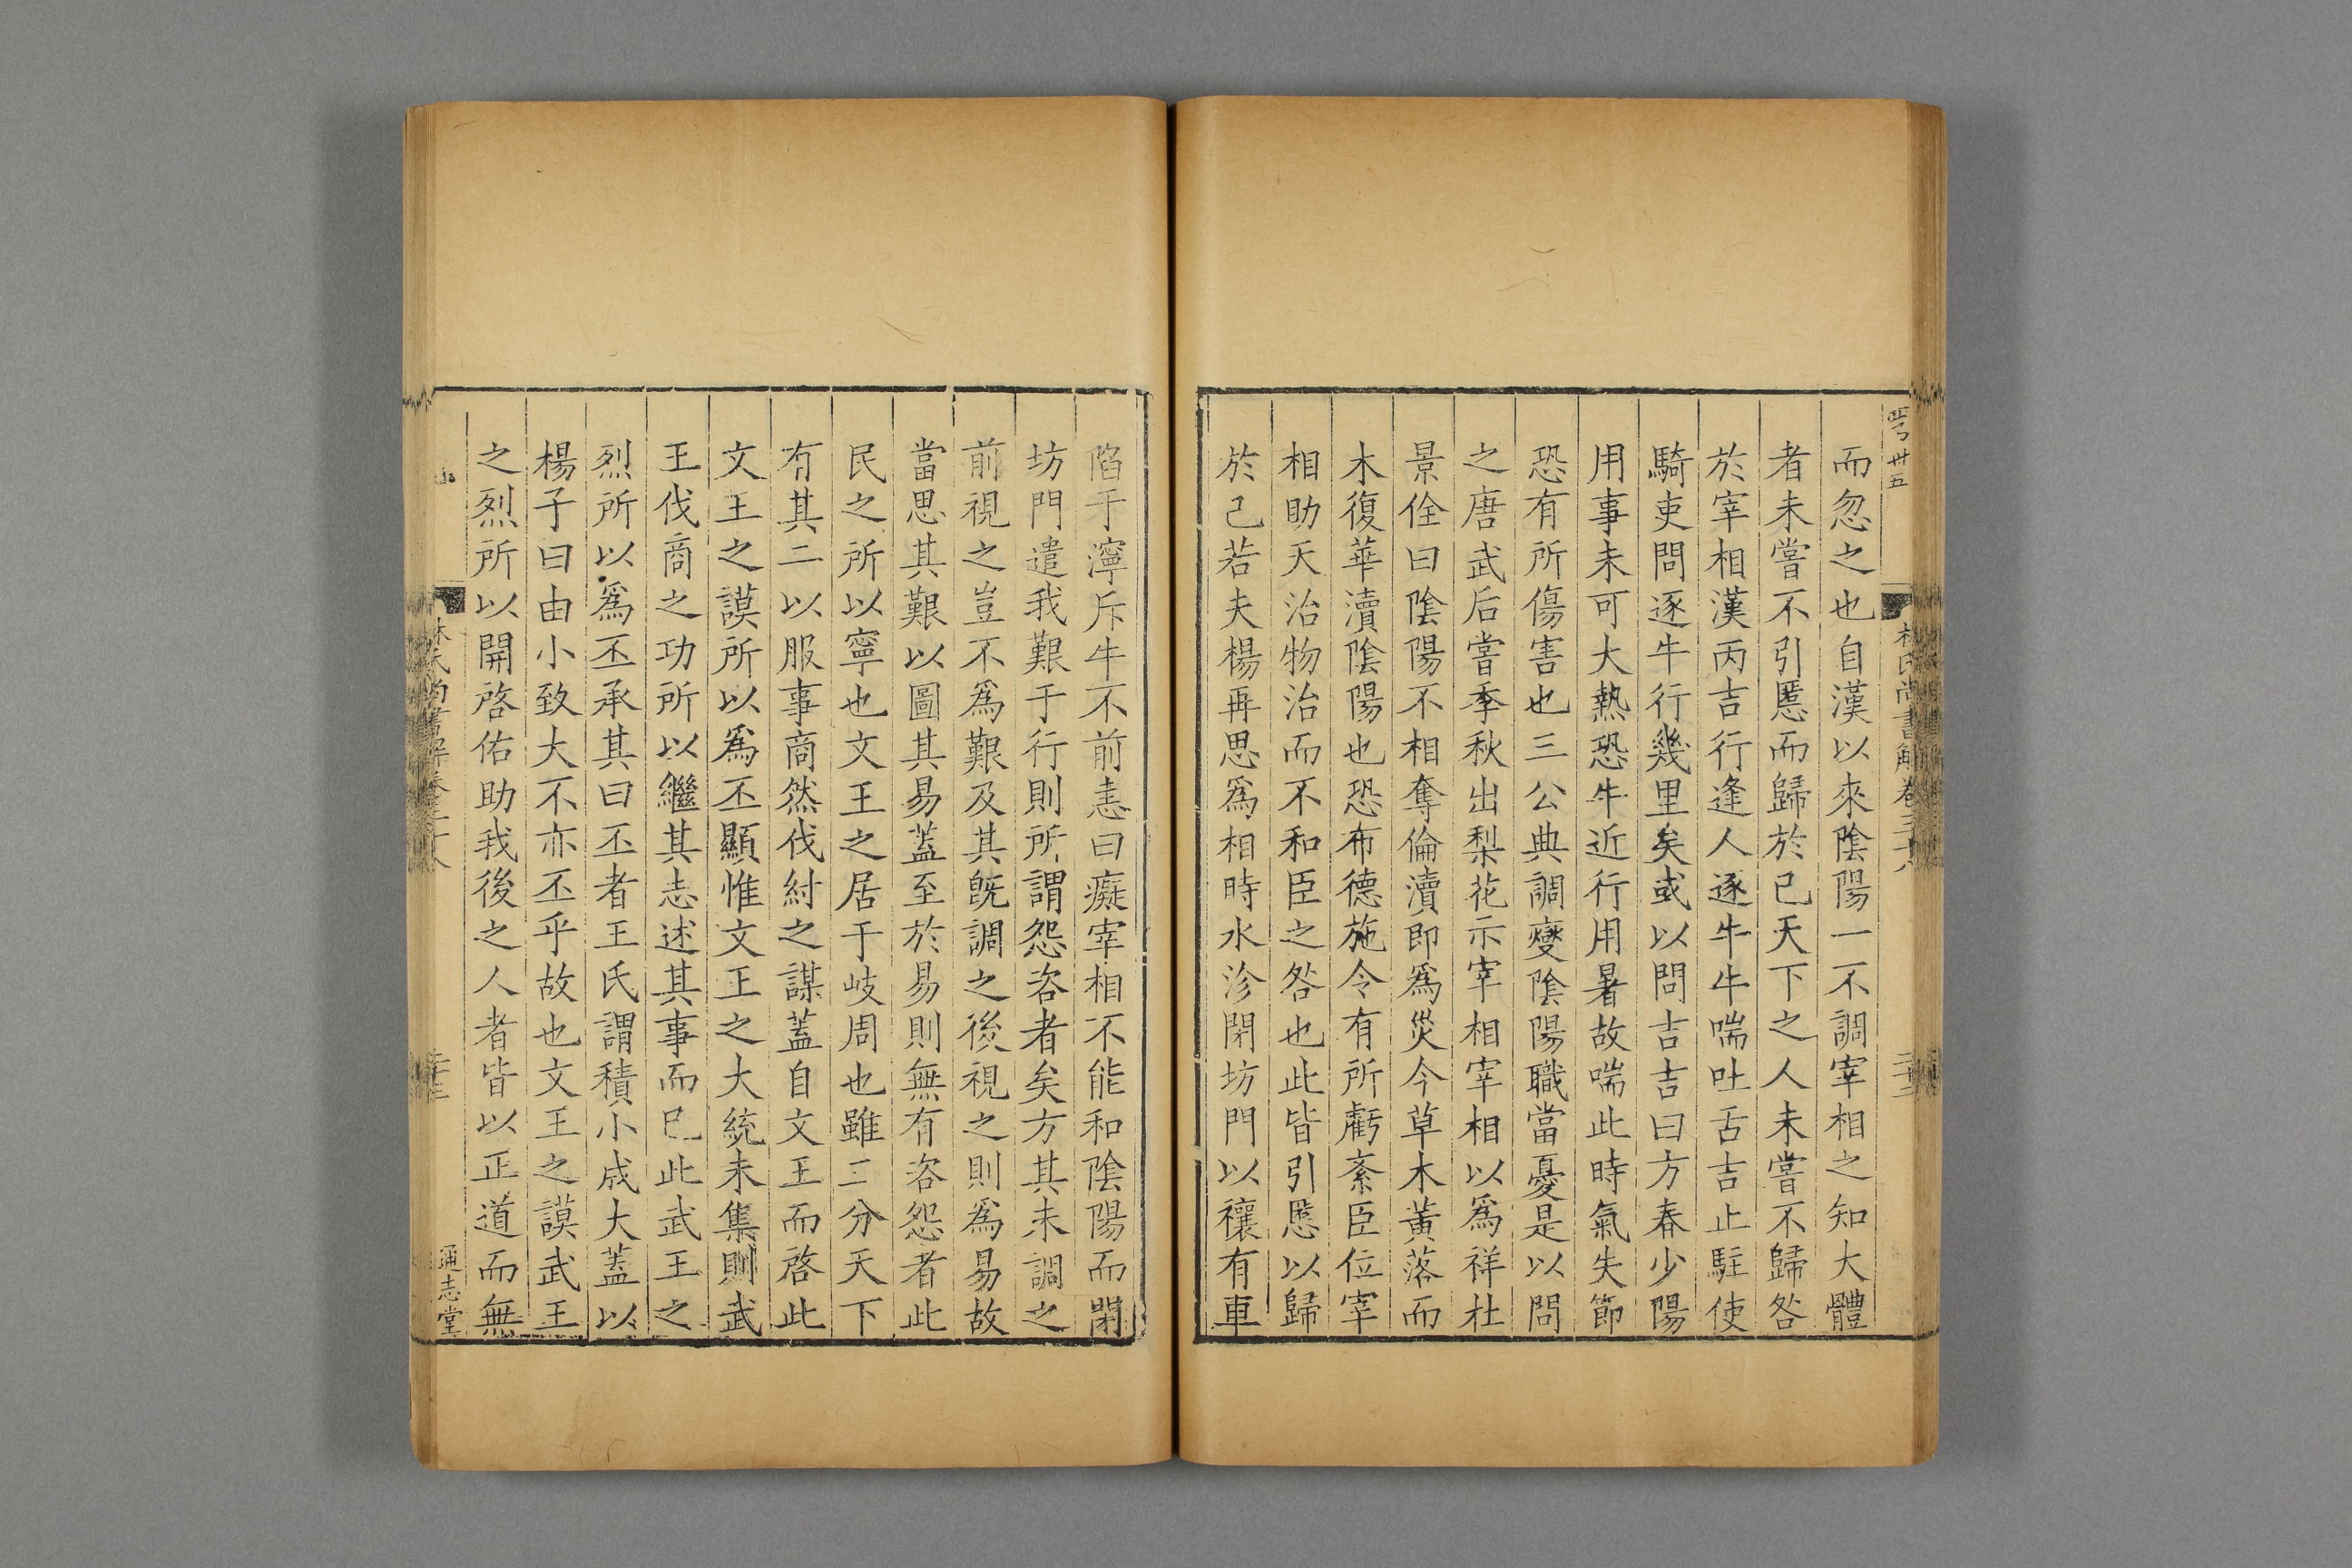 而忽之也自漢以來陰陽一不調宰相之知大體
者未嘗不引慝而歸於已天下之人未嘗不歸咎
於宰相漢丙吉行逢人逐牛牛喘吐舌吉止駐使
騎吏問逐牛行幾里矣或以問吉吉曰方春少陽
用事未可大熱恐牛近行用暑故喘此時氣失節
恐有所傷害也三公典調燮陰陽職當憂是以問
之唐武后嘗季秋出梨花示宰相宰相以爲祥杜
景佺曰陰陽不相奪倫瀆即爲災今草木黃落而
木復華瀆陰陽也恐布德施令有所虧紊臣位宰
相助天治物治而不和臣之咎也此皆引慝以歸
於己若夫楊再思爲相時水沴閉坊門以禳有車
陷于濘斥牛不前恚曰癡宰相不能和陰陽而閉
坊門遣我艱于行則所謂怨咨者矣方其未調之
前視之豈不爲艱及其旣調之後視之則爲易故
當思其艱以圖其易蓋至於易則無有咨怨者此
民之所以寧也文王之居于岐周也雖三分天下
有其二以服事商然伐紂之謀蓋自文王而啓此
文王之謨所以爲丕顯惟文王之大統未集則武
王伐商之功所以繼其志述其事而已此武王之
烈所以爲丕承其曰丕者王氏謂積小成大蓋以
楊子曰由小致大不亦丕乎故也文王之謨武王
之烈所以開啓佑助我後之人者皆以正道而無
通志堂